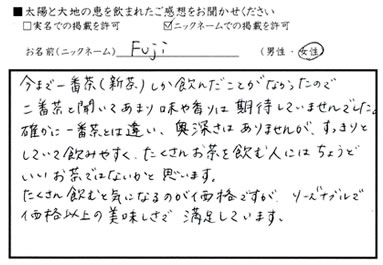 ■太陽と大地の恵を飲まれたご感想をお聞かせください
□実名での掲載を許可 ☑ニックネームでの掲載を許可
お名前(ニックネーム) Fuji (男性・女性)
今まで一番茶(新茶)しか飲んだことがなかったので
二番茶と聞いてあまり味や香りは期待していませんでした。
確かに一番茶とは違い、奥深さはありませんが、すっきりと
していて飲みやすく、たくさんお茶を飲む人にはちょうど
いいお茶ではないかと思います。
たくさん飲むと気になるのが価格ですが、リーズナブルで
価格以上の美味しさで満足しています。